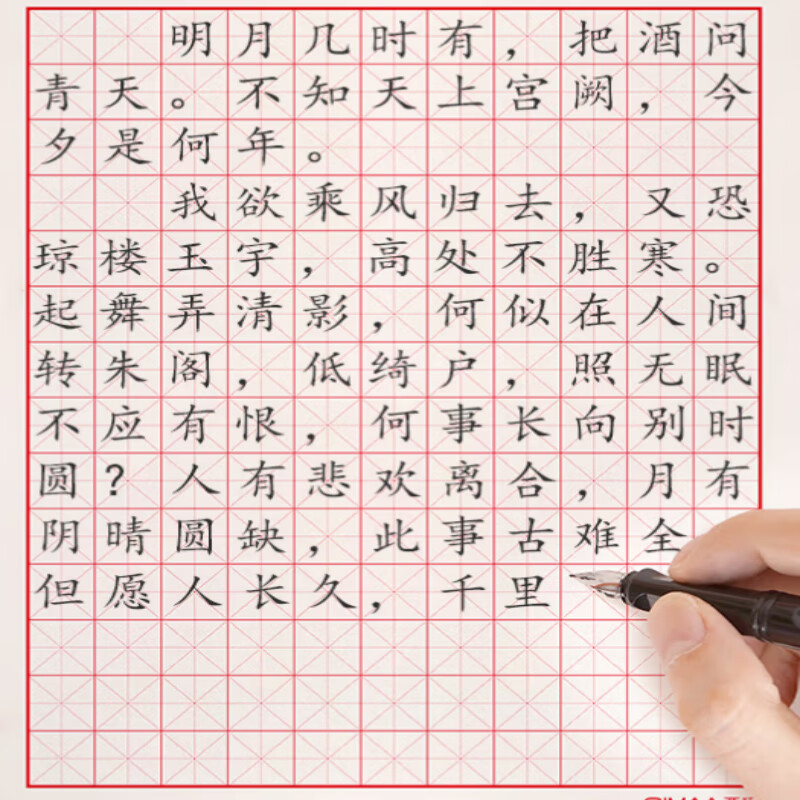 明月几时有，把酒问
青天。不知天上宫阙，今
夕是何年。
我欲乘风归去，又恐
琼楼玉宇，高处不胜寒。
起舞弄清影，何似在人间
转朱阁，低绮户，照无眠
不应有恨，何事长向别时
圆？人有悲欢离合，月有
阴晴圆缺，此事古难全
但愿人长久，千里